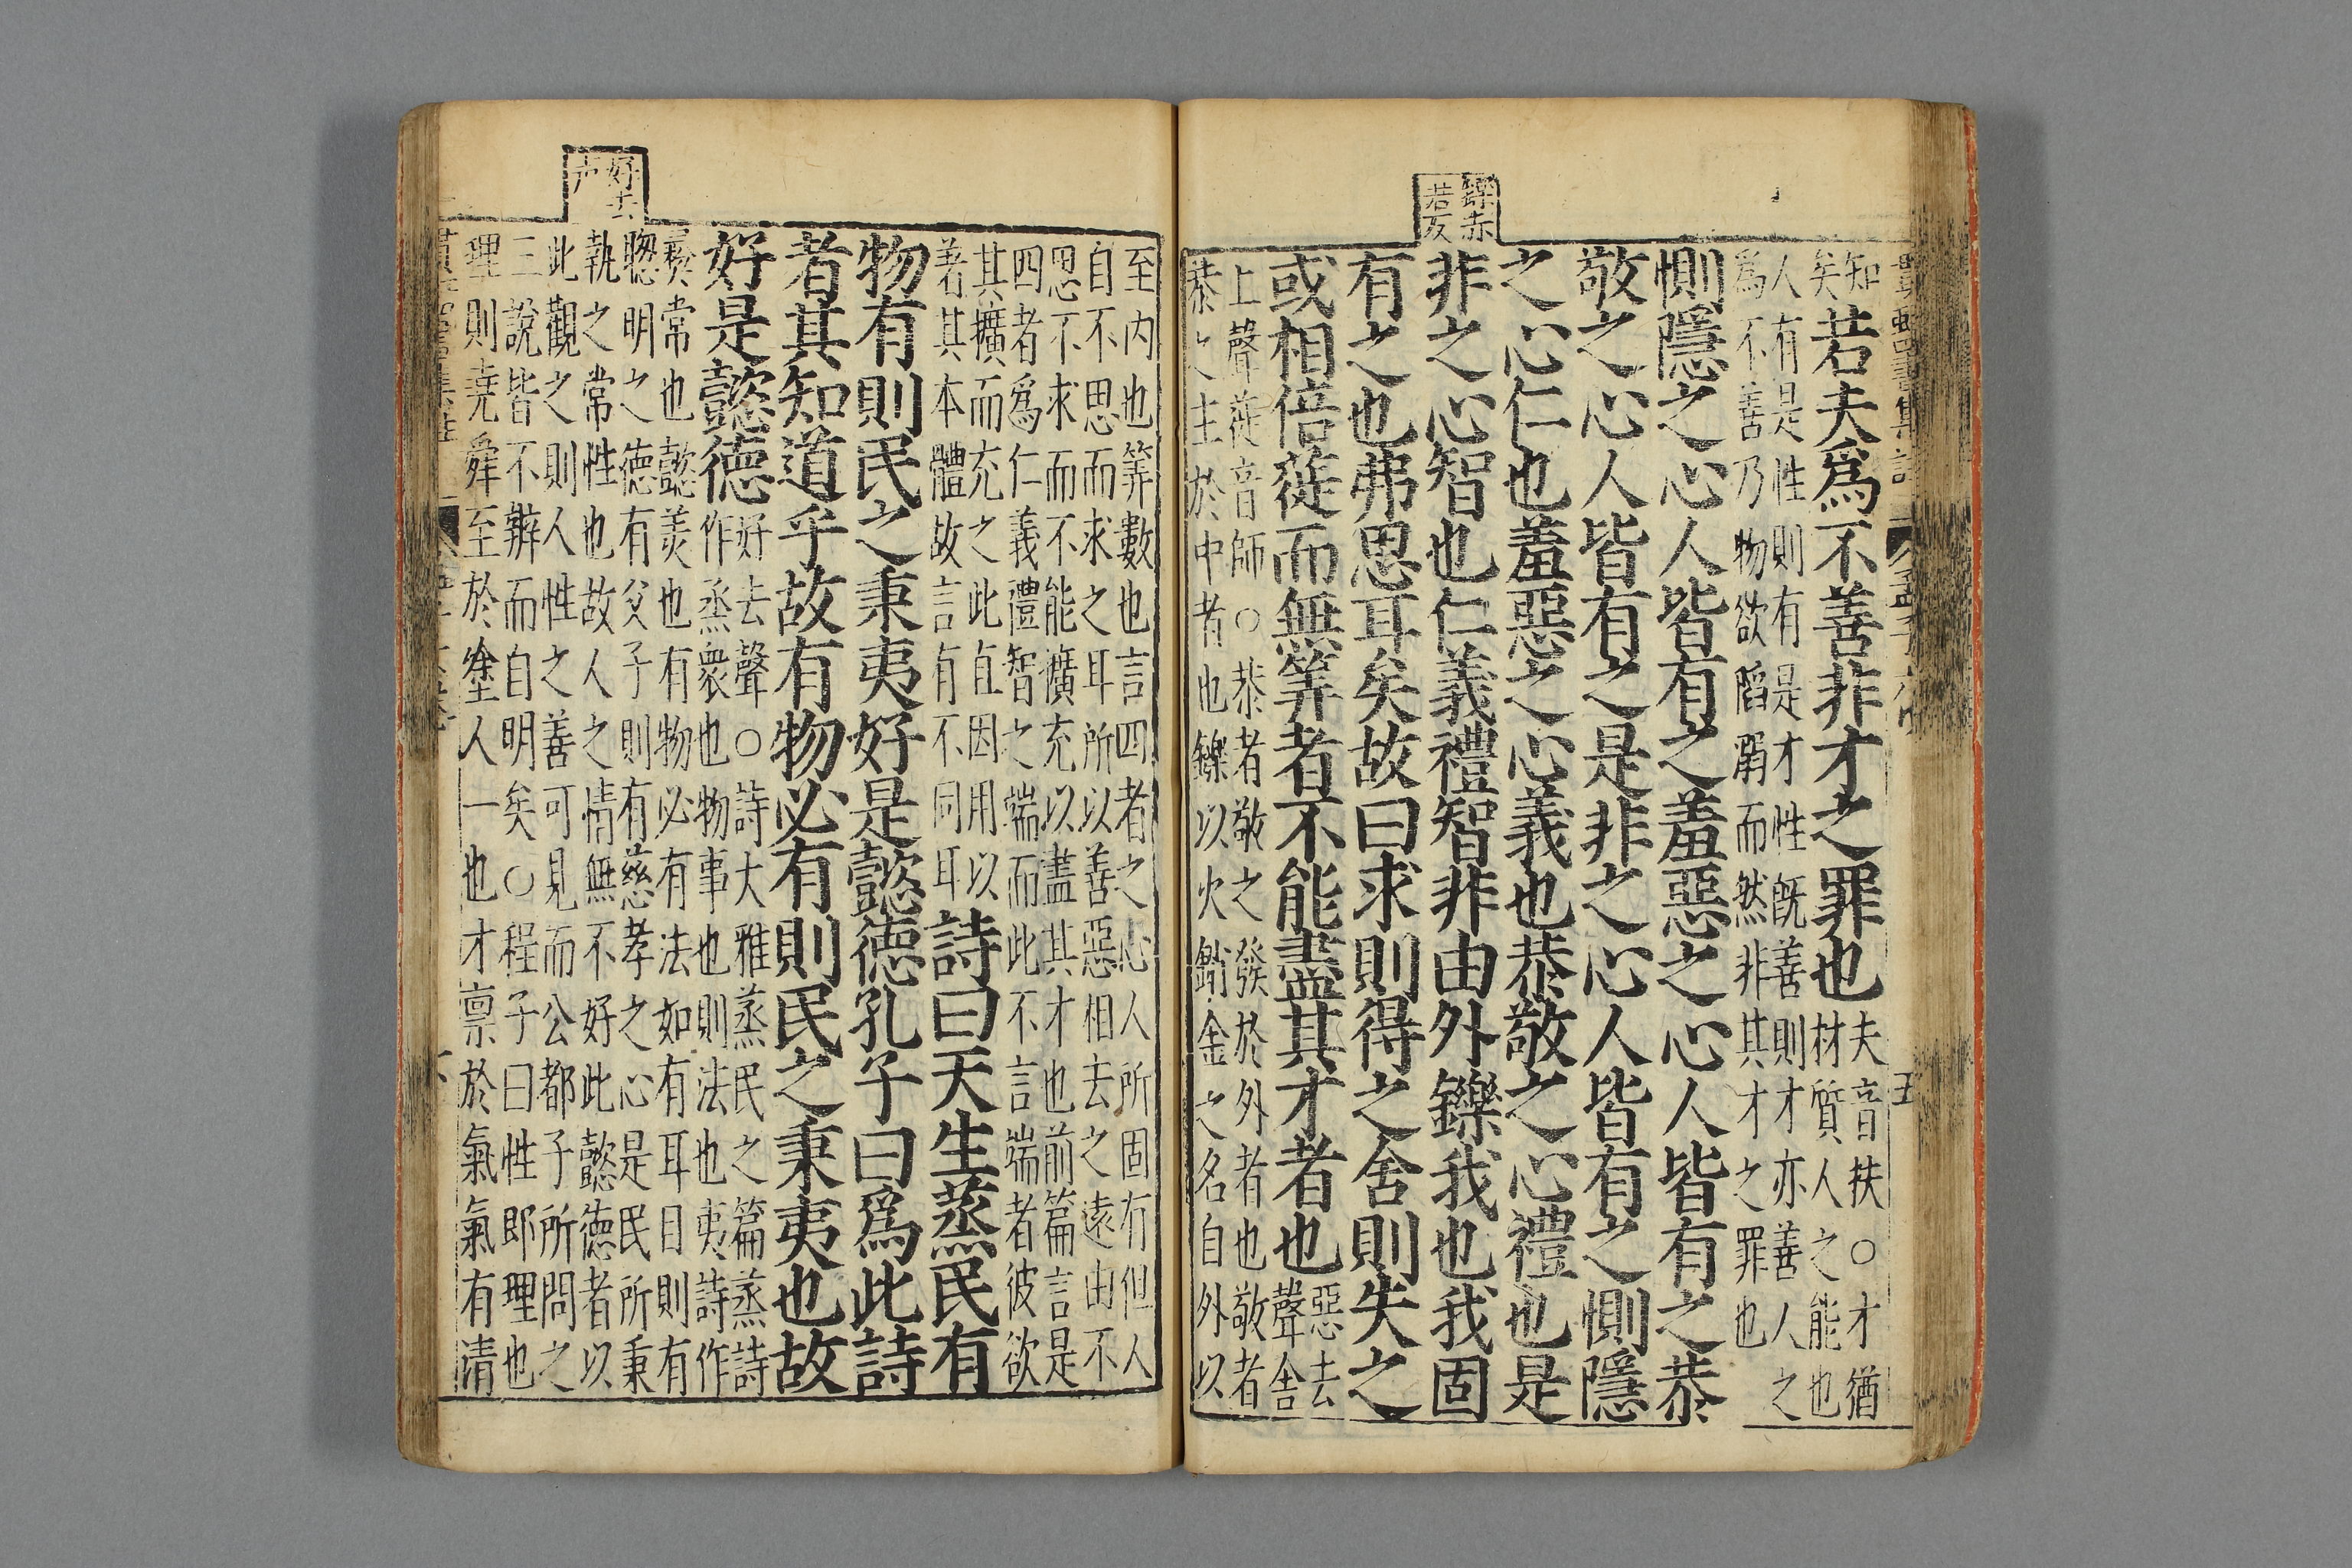 知
矣
若夫爲不善非才之罪也
夫音扶○才猶
材質人之能也
人有是性則有是才性旣善則才亦善人之
爲不善乃物欲陷溺而然非其才之罪也
惻隱之心人皆有之羞惡之心人皆有之恭
敬之心人皆有之是非之心人皆有之惻隱
之心仁也羞惡之心義也恭敬之心禮也是
鑠赤
若反
非之心智也仁義禮智非由外鑠我也我固
有之也弗思耳矣故曰求則得之舍則失之
或相倍蓰而無筭者不能盡其才者也
惡去
聲舍
上聲蓰音師○恭者敬之發於外者也敬者
恭之主於中者也鑠以火銷金之名自外以
至內也筭數也言四者之心人所固有但人
自不思而求之耳所以善惡相去之遠由不
思不求而不能擴充以盡其才也前篇言是
四者爲仁義禮智之端而此不言端者彼欲
其擴而充之此直因用以
著其本體故言有不同耳
詩曰天生蒸民有
物有則民之秉夷好是懿德孔子曰爲此詩
者其知道乎故有物必有則民之秉夷也故
好是懿德
好去聲○詩大雅蒸民之篇蒸詩
作烝衆也物事也則法也夷詩作
彝常也懿美也有物必有法如有耳目則有
好去
声
聰明之德有父子則有慈孝之心是民所秉
執之常性也故人之情無不好此懿德者以
此觀之則人性之善可見而公都子所問之
三說皆不辨而自明矣○程子曰性卽理也
理則堯舜至於塗人一也才稟於氣氣有清